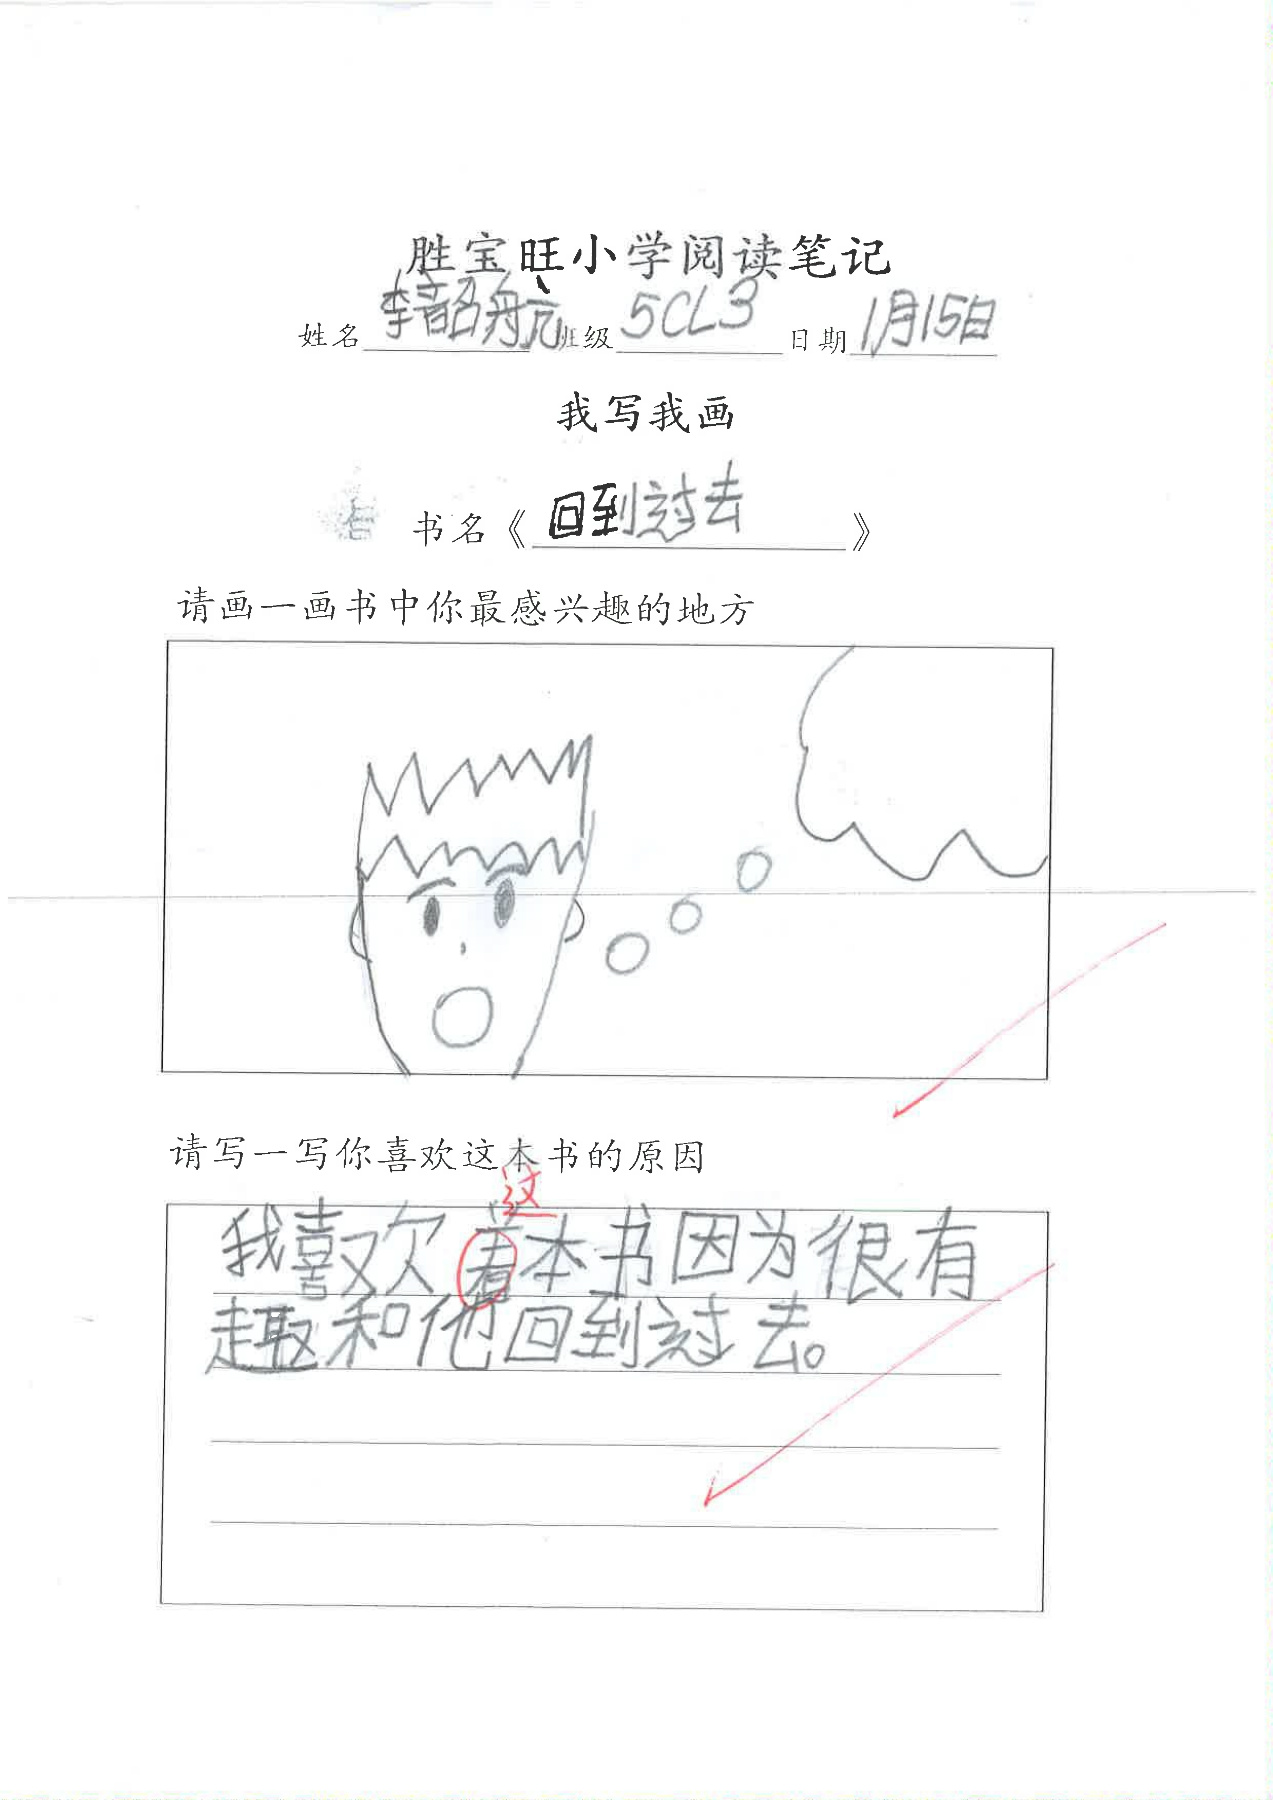 胜宝旺小学阅读笔记
姓名 李韶航 班级 5CL3 日期 1月15日
我写我画
书名《回到过去》
请画一画书中你最感兴趣的地方
请写一写你喜欢这本书的原因
这
我喜欢着本书因为很有
趣和他回到过去。